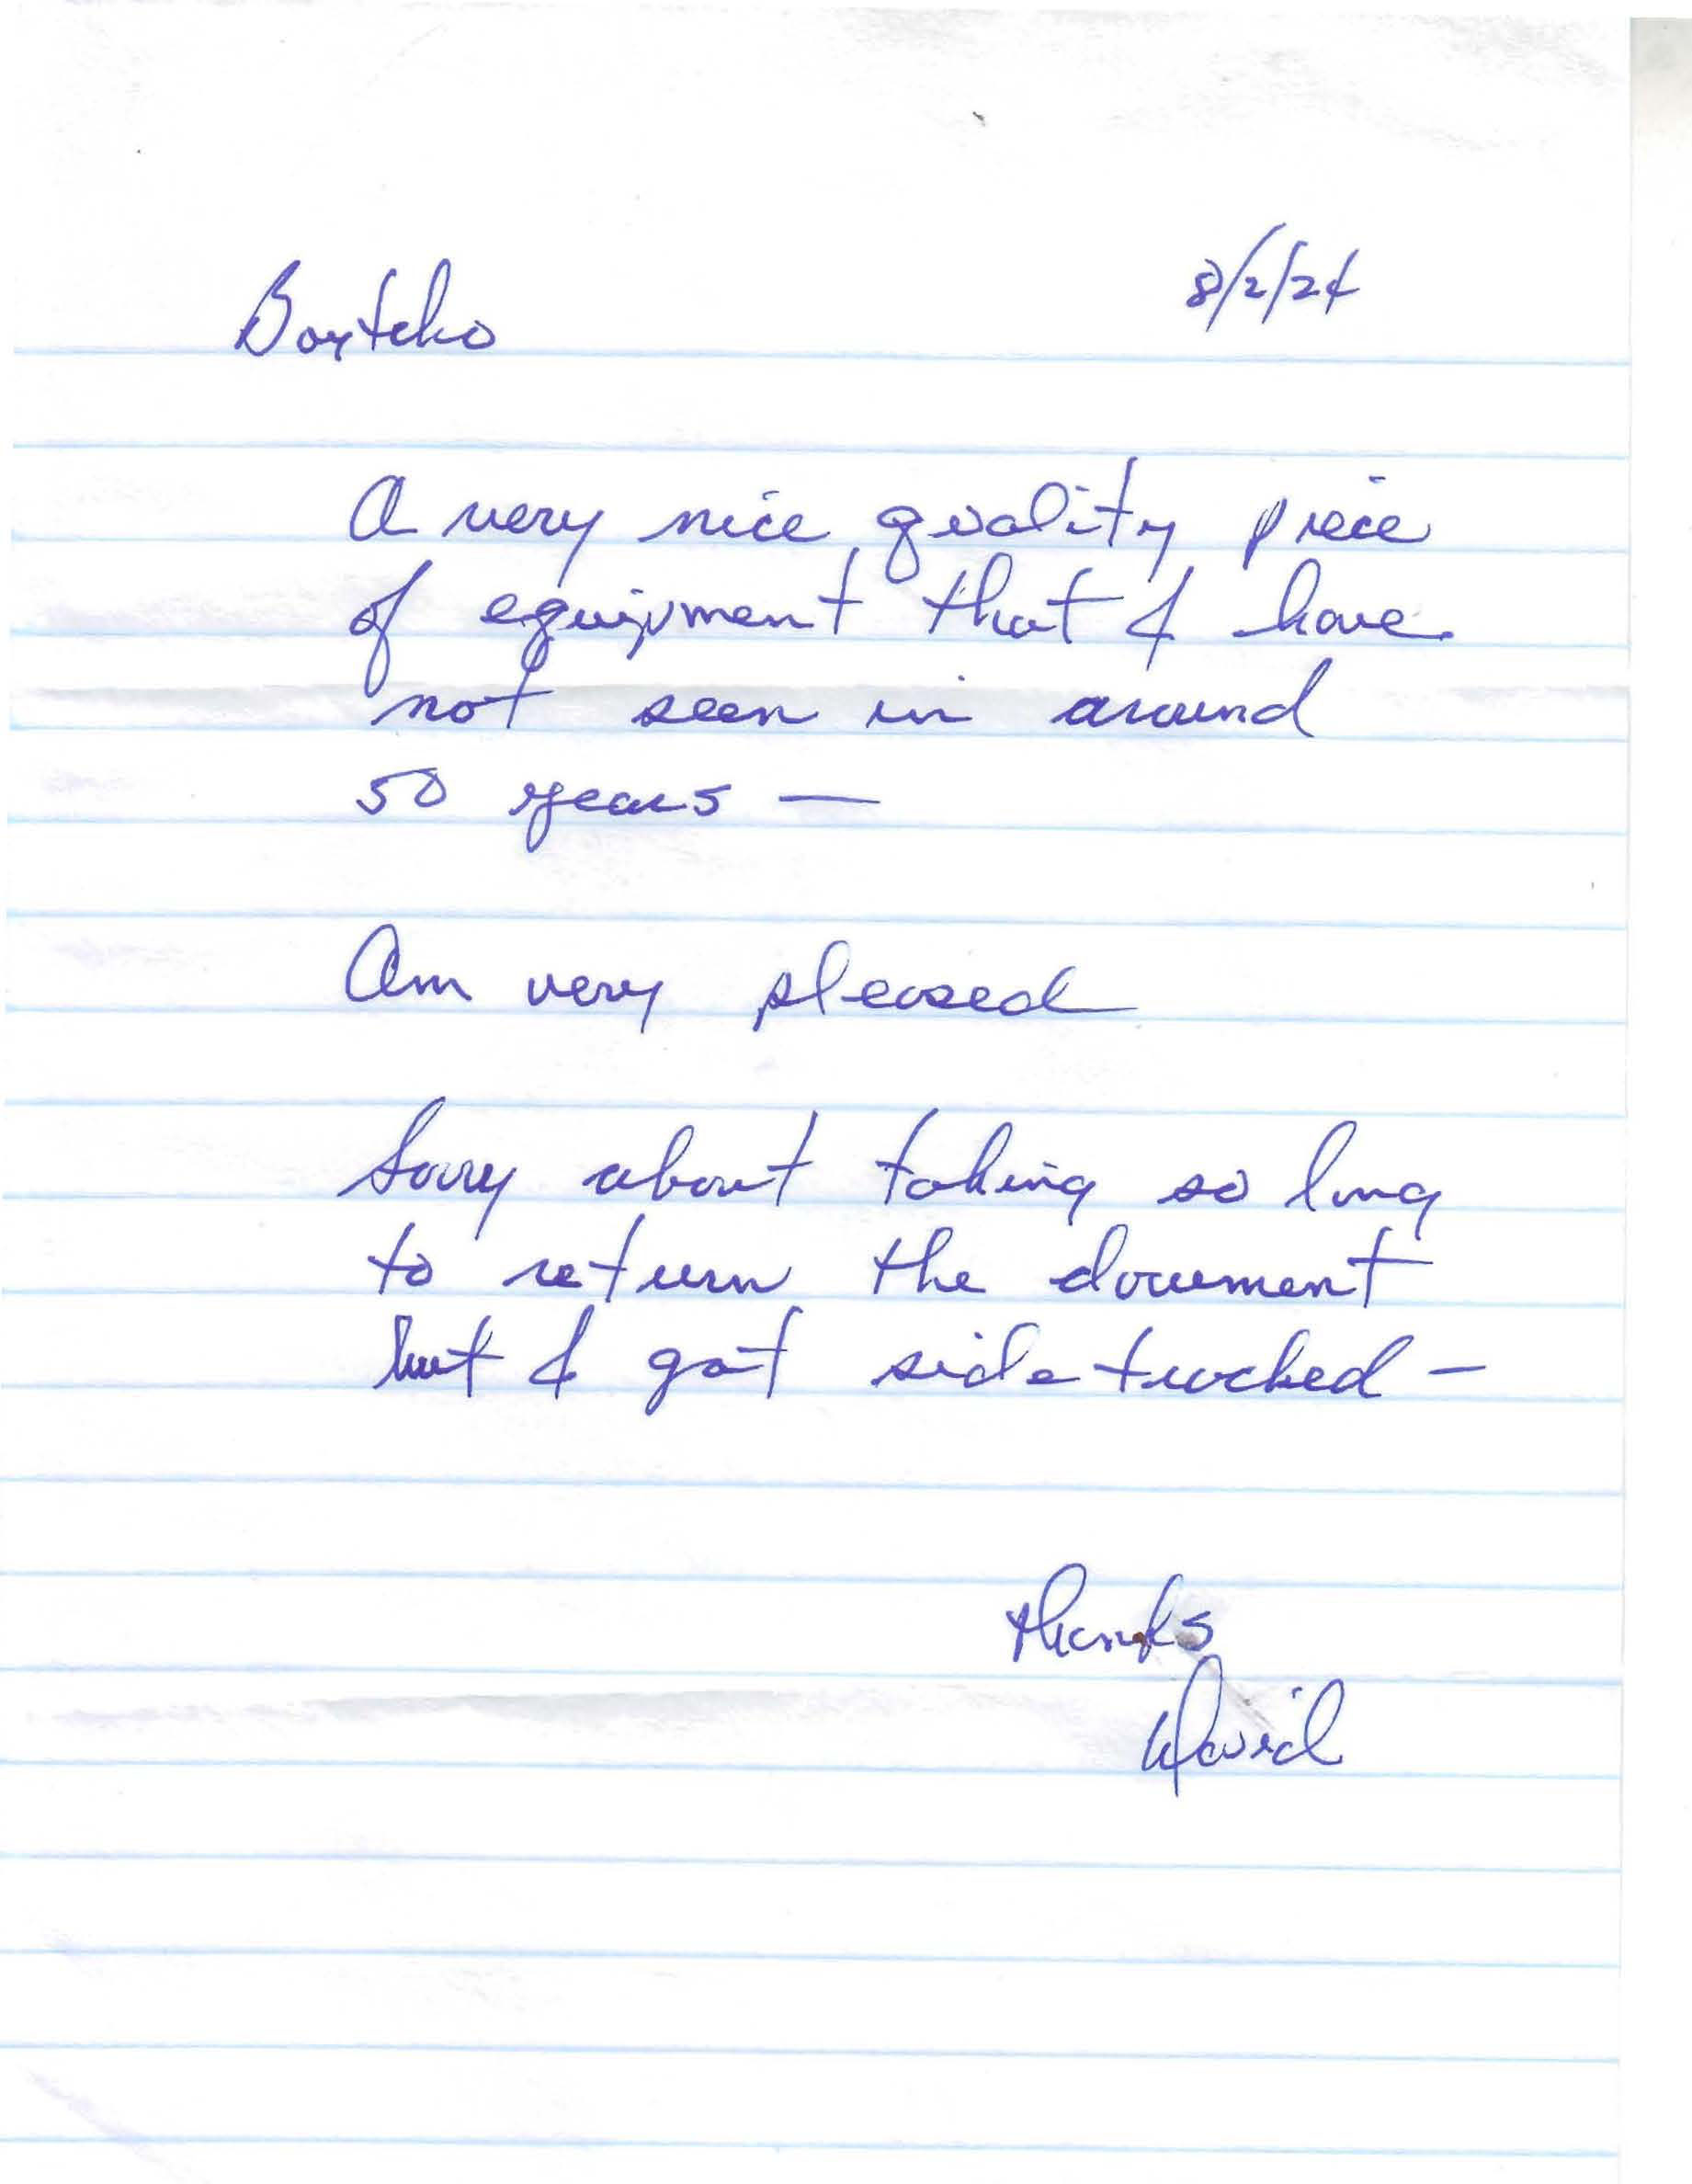 8/2/24
A very nice quality piece
of equipment that I have
not seen in around
50 years —
Am very pleased
Sorry about taking so long
to return the document
but I got side tracked -
Thanks
David